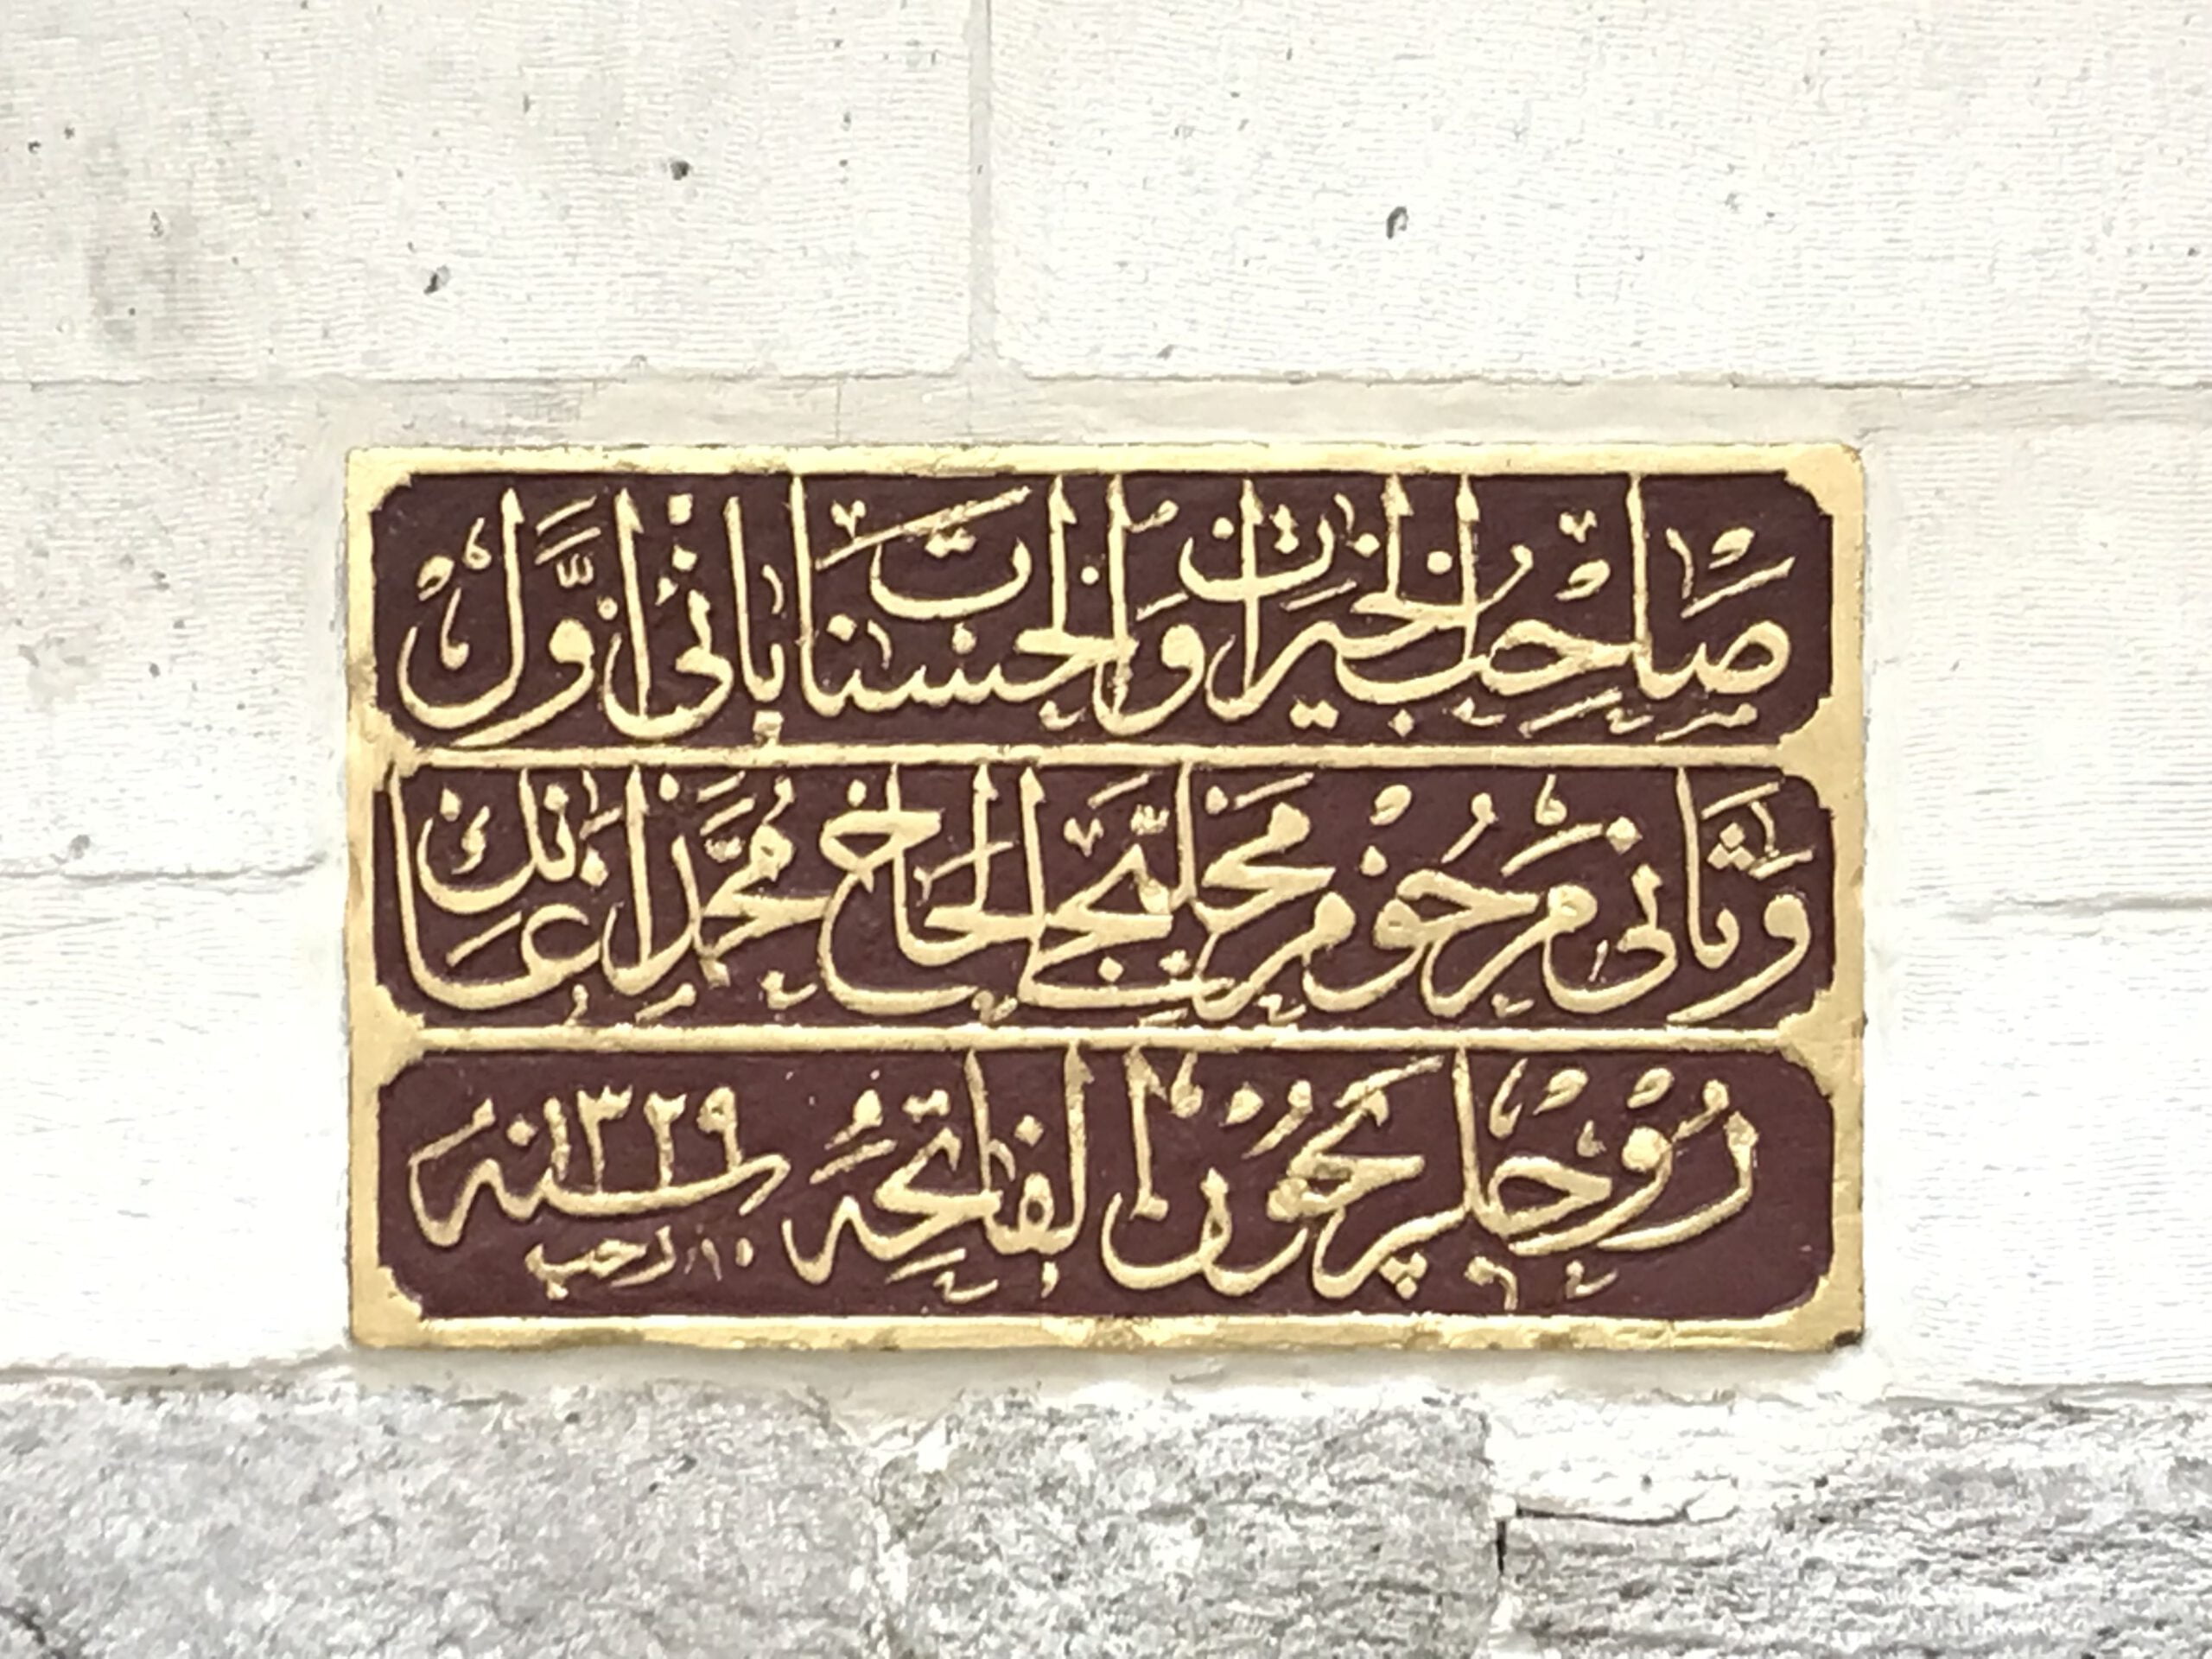 صاحب الخيرات والحسنات بانى اول
وثانى مرحوم محلبيجى الحاج محمد اغانك
روحلريچون الفاتحه سنه ١٣٢٩
١٠ رجب